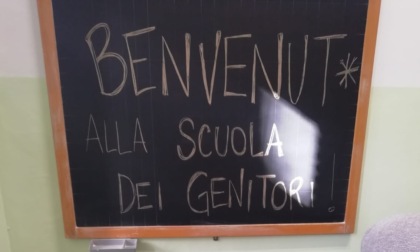 BENVENUT*
ALLA SCUOLA
DEI GENITORI!